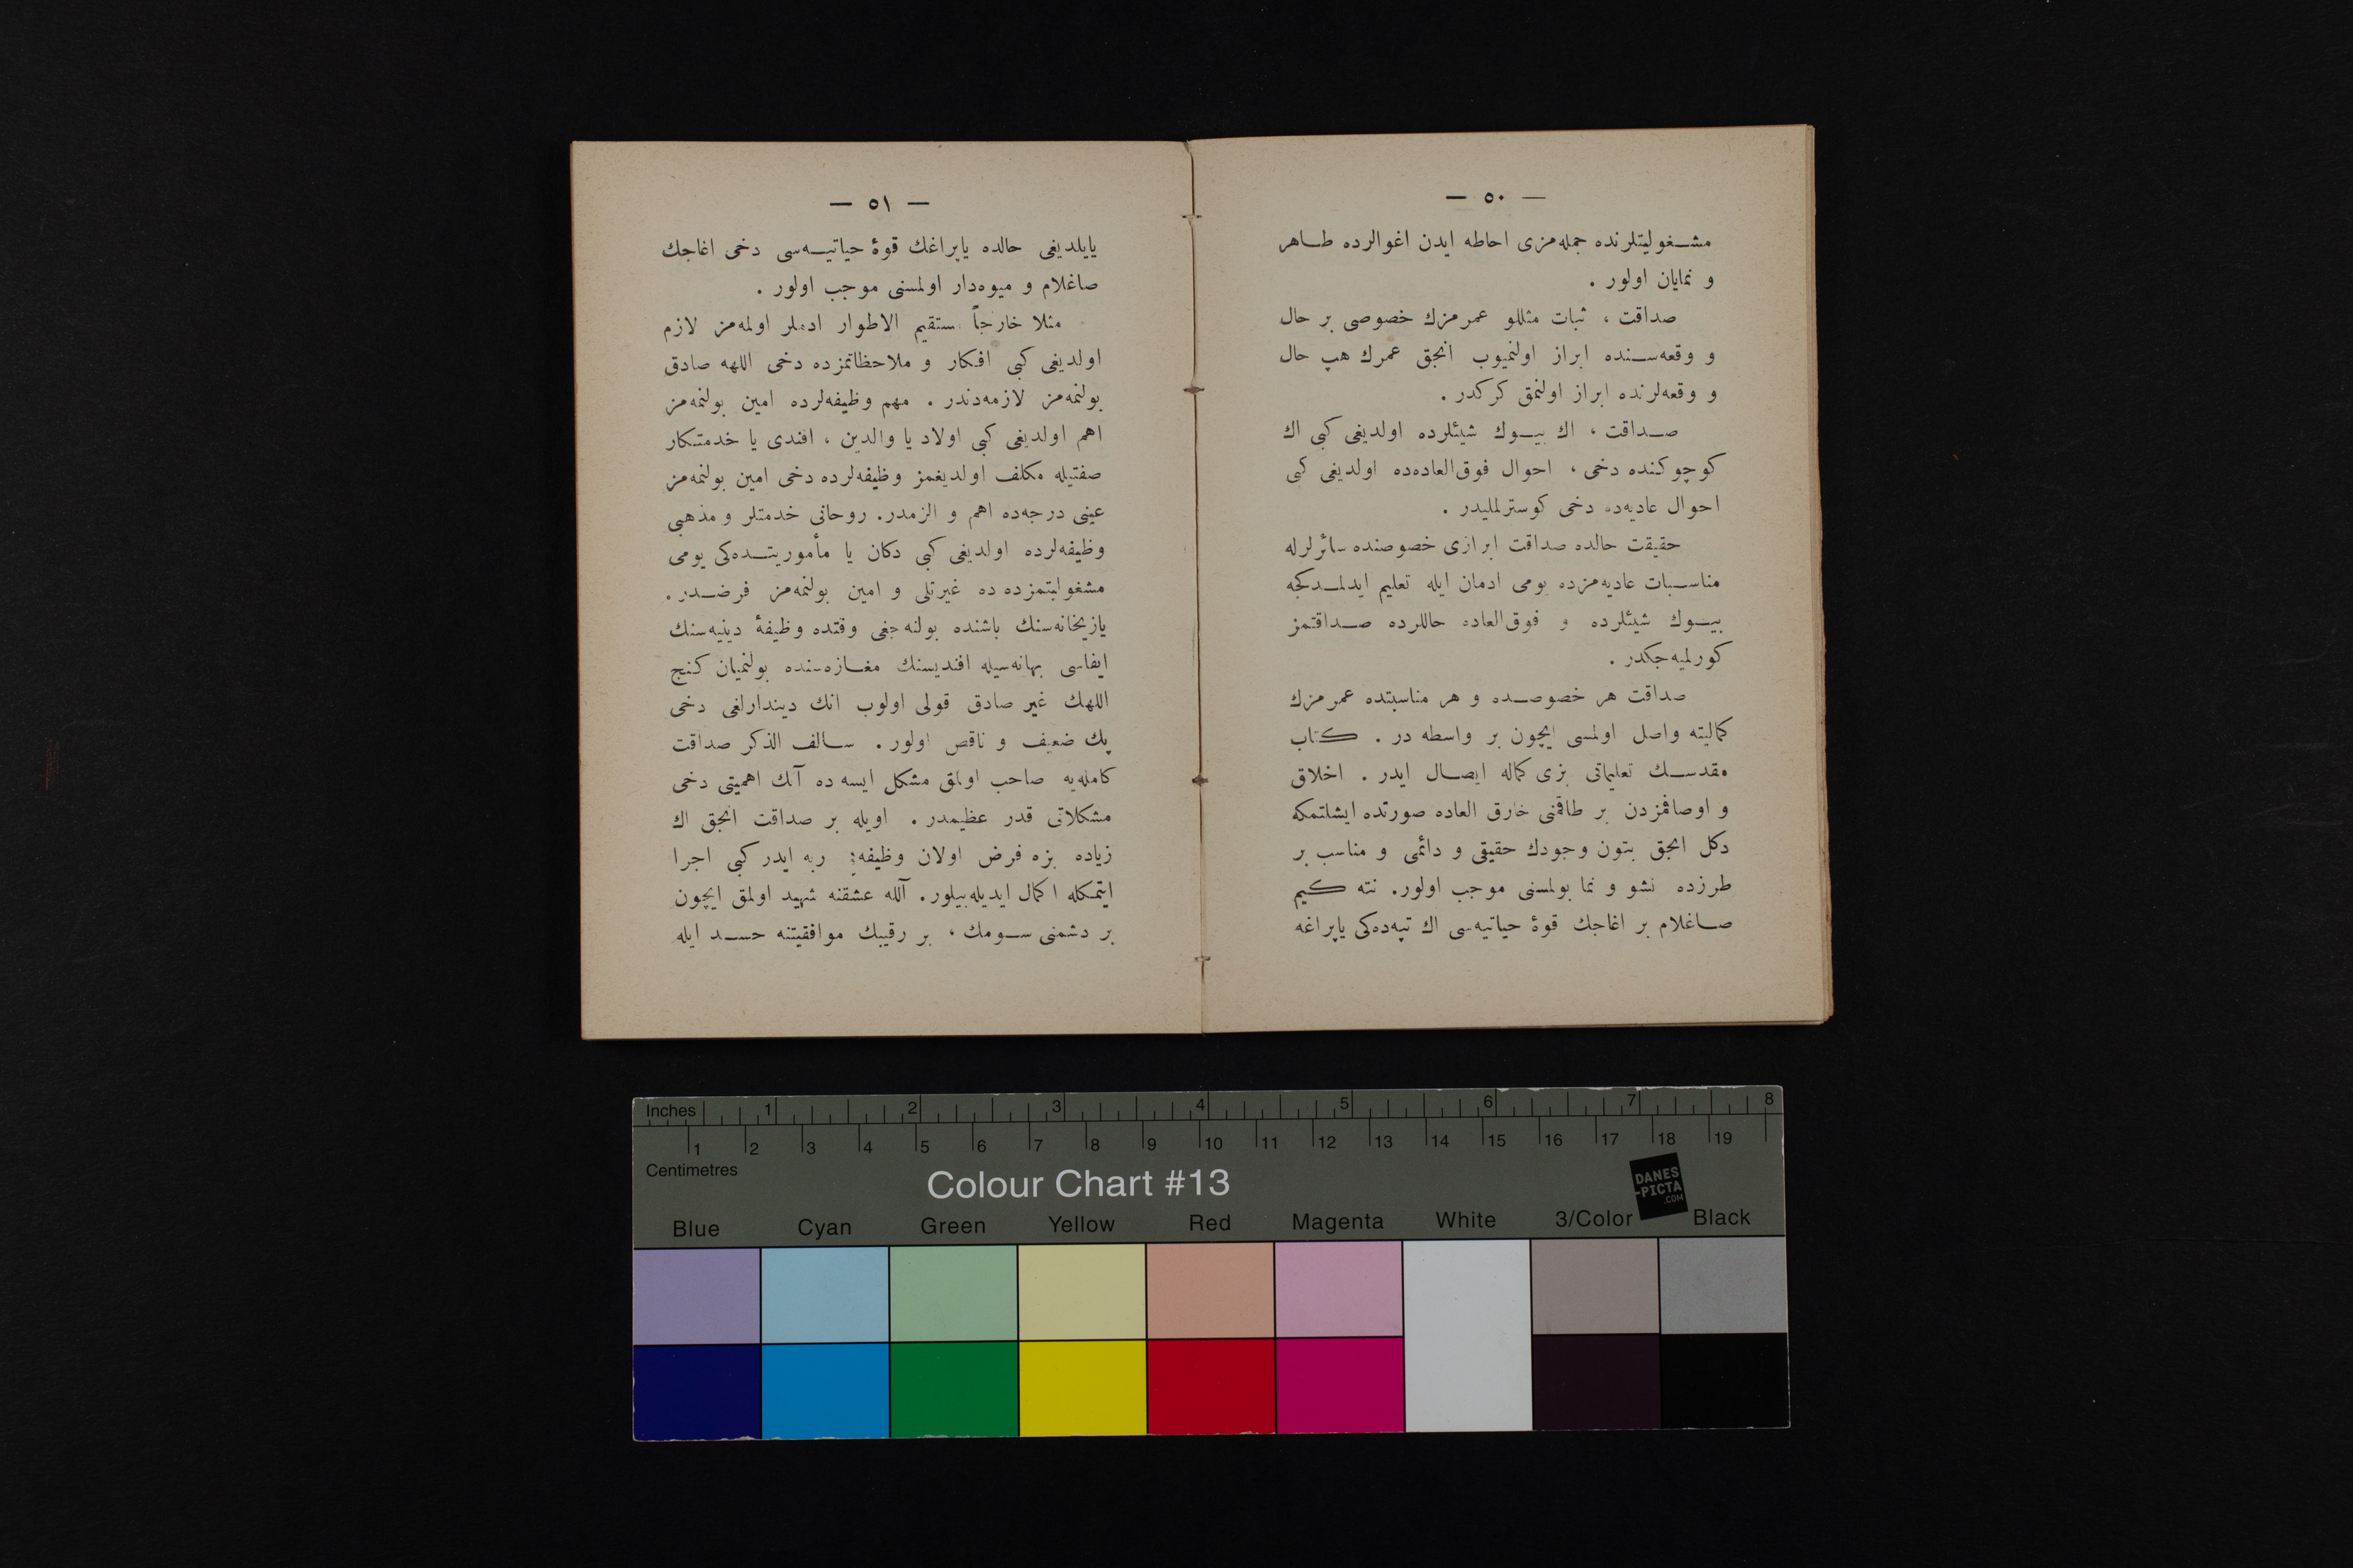 — ٥٠ —
مشغوليتلرنده جمله‌مزى احاطه ايدن اغوالرده طاهر
و نمايان اولور .
صداقت ، ثبات مثللو عمرمزك خصوصى بر حال
و وقعه‌سنده ابراز اولنميوب انجق عمرك هپ حال
و وقعه‌لرنده ابراز اولنمق كركدر .
صداقت ، اك بيوك شيئلرده اولديغى كبى اك
كوچوكنده دخى ، احوال فوق‌العاده‌ده اولديغى كبى
احوال عاديه‌ده دخى كوسترلمليدر .
حقيقت حالده صداقت ابرازى خصوصنده سائرلرله
مناسبات عاديه‌مزده يومى ادمان ايله تعليم ايدلمدكجه
بيوك شيئلرده و فوق‌العاده حاللرده صداقتمز
كورلميه‌جكدر .
صداقت هر خصوصده و هر مناسبتده عمرمزك
كماليته واصل اولمسى ايچون بر واسطه در . كتاب
مقدسك تعليماتى بزى كماله ايصال ايدر . اخلاق
و اوصافمزدن بر طاقمنى خارق العاده صورتده ايشلتمكه
دكل انجق بتون وجودك حقيقى و دائمى و مناسب بر
طرزده نشو و نما بولمسنى موجب اولور. نته كيم
صاغلام بر اغاجك قوۀ حياتيه‌سى اك تپه‌ده‌كى ياپراغه
— ٥١ —
يايلديغى حالده ياپراغك قوۀ حياتيه‌سى دخى اغاجك
صاغلام و ميوه‌دار اولمسنى موجب اولور .
مثلا خارجاً مستقيم الاطوار ادملر اولمه‌مز لازم
اولديغى كبى افكار و ملاحظاتمزده دخى اللهه صادق
بولنمه‌مز لازمه‌دندر . مهم وظيفه‌لرده امين بولنمه‌مز
اهم اولديغى كبى اولاد يا والدين ، افندى يا خدمتكار
صفتيله مكلف اولديغمز وظيفه‌لرده دخى امين بولنمه‌مز
عينى درجه‌ده اهم و الزمدر. روحانى خدمتلر و مذهبى
وظيفه‌لرده اولديغى كبى دكان يا مأموريتده‌كى يومى
مشغوليتمزده ده غيرتلى و امين بولنمه‌مز فرضدر.
يازيخانه‌سنك باشنده بولنه‌جغى وقتده وظيفۀ دينيه‌سنك
ايفاسى بهانه‌سيله افنديسنك مغازه‌سنده بولنميان كنج
اللهك غير صادق قولى اولوب انك ديندارلغى دخى
پك ضعيف و ناقص اولور. سالف الذكر صداقت
كامله‌يه صاحب اولمق مشكل ايسه ده آنك اهميتى دخى
مشكلاتى قدر عظيمدر . اويله بر صداقت انجق اك
زياده بزه فرض اولان وظيفه‌يى ربه ايدر كبى اجرا
ايتمكله اكمال ايديله‌بيلور. آلله عشقنه شهيد اولمق ايچون
بر دشمنى سومك ، بر رقيبك موافقيتنه حسد ايله
Inches 1 2 3 4 5 6 7 8
1 2 3 4 5 6 7 8 9 10 11 12 13 14 15 16 17 18 19
Centimetres
Colour Chart #13
DANES
-PICTA
.COM
Blue Cyan Green Yellow Red Magenta White 3/Color Black